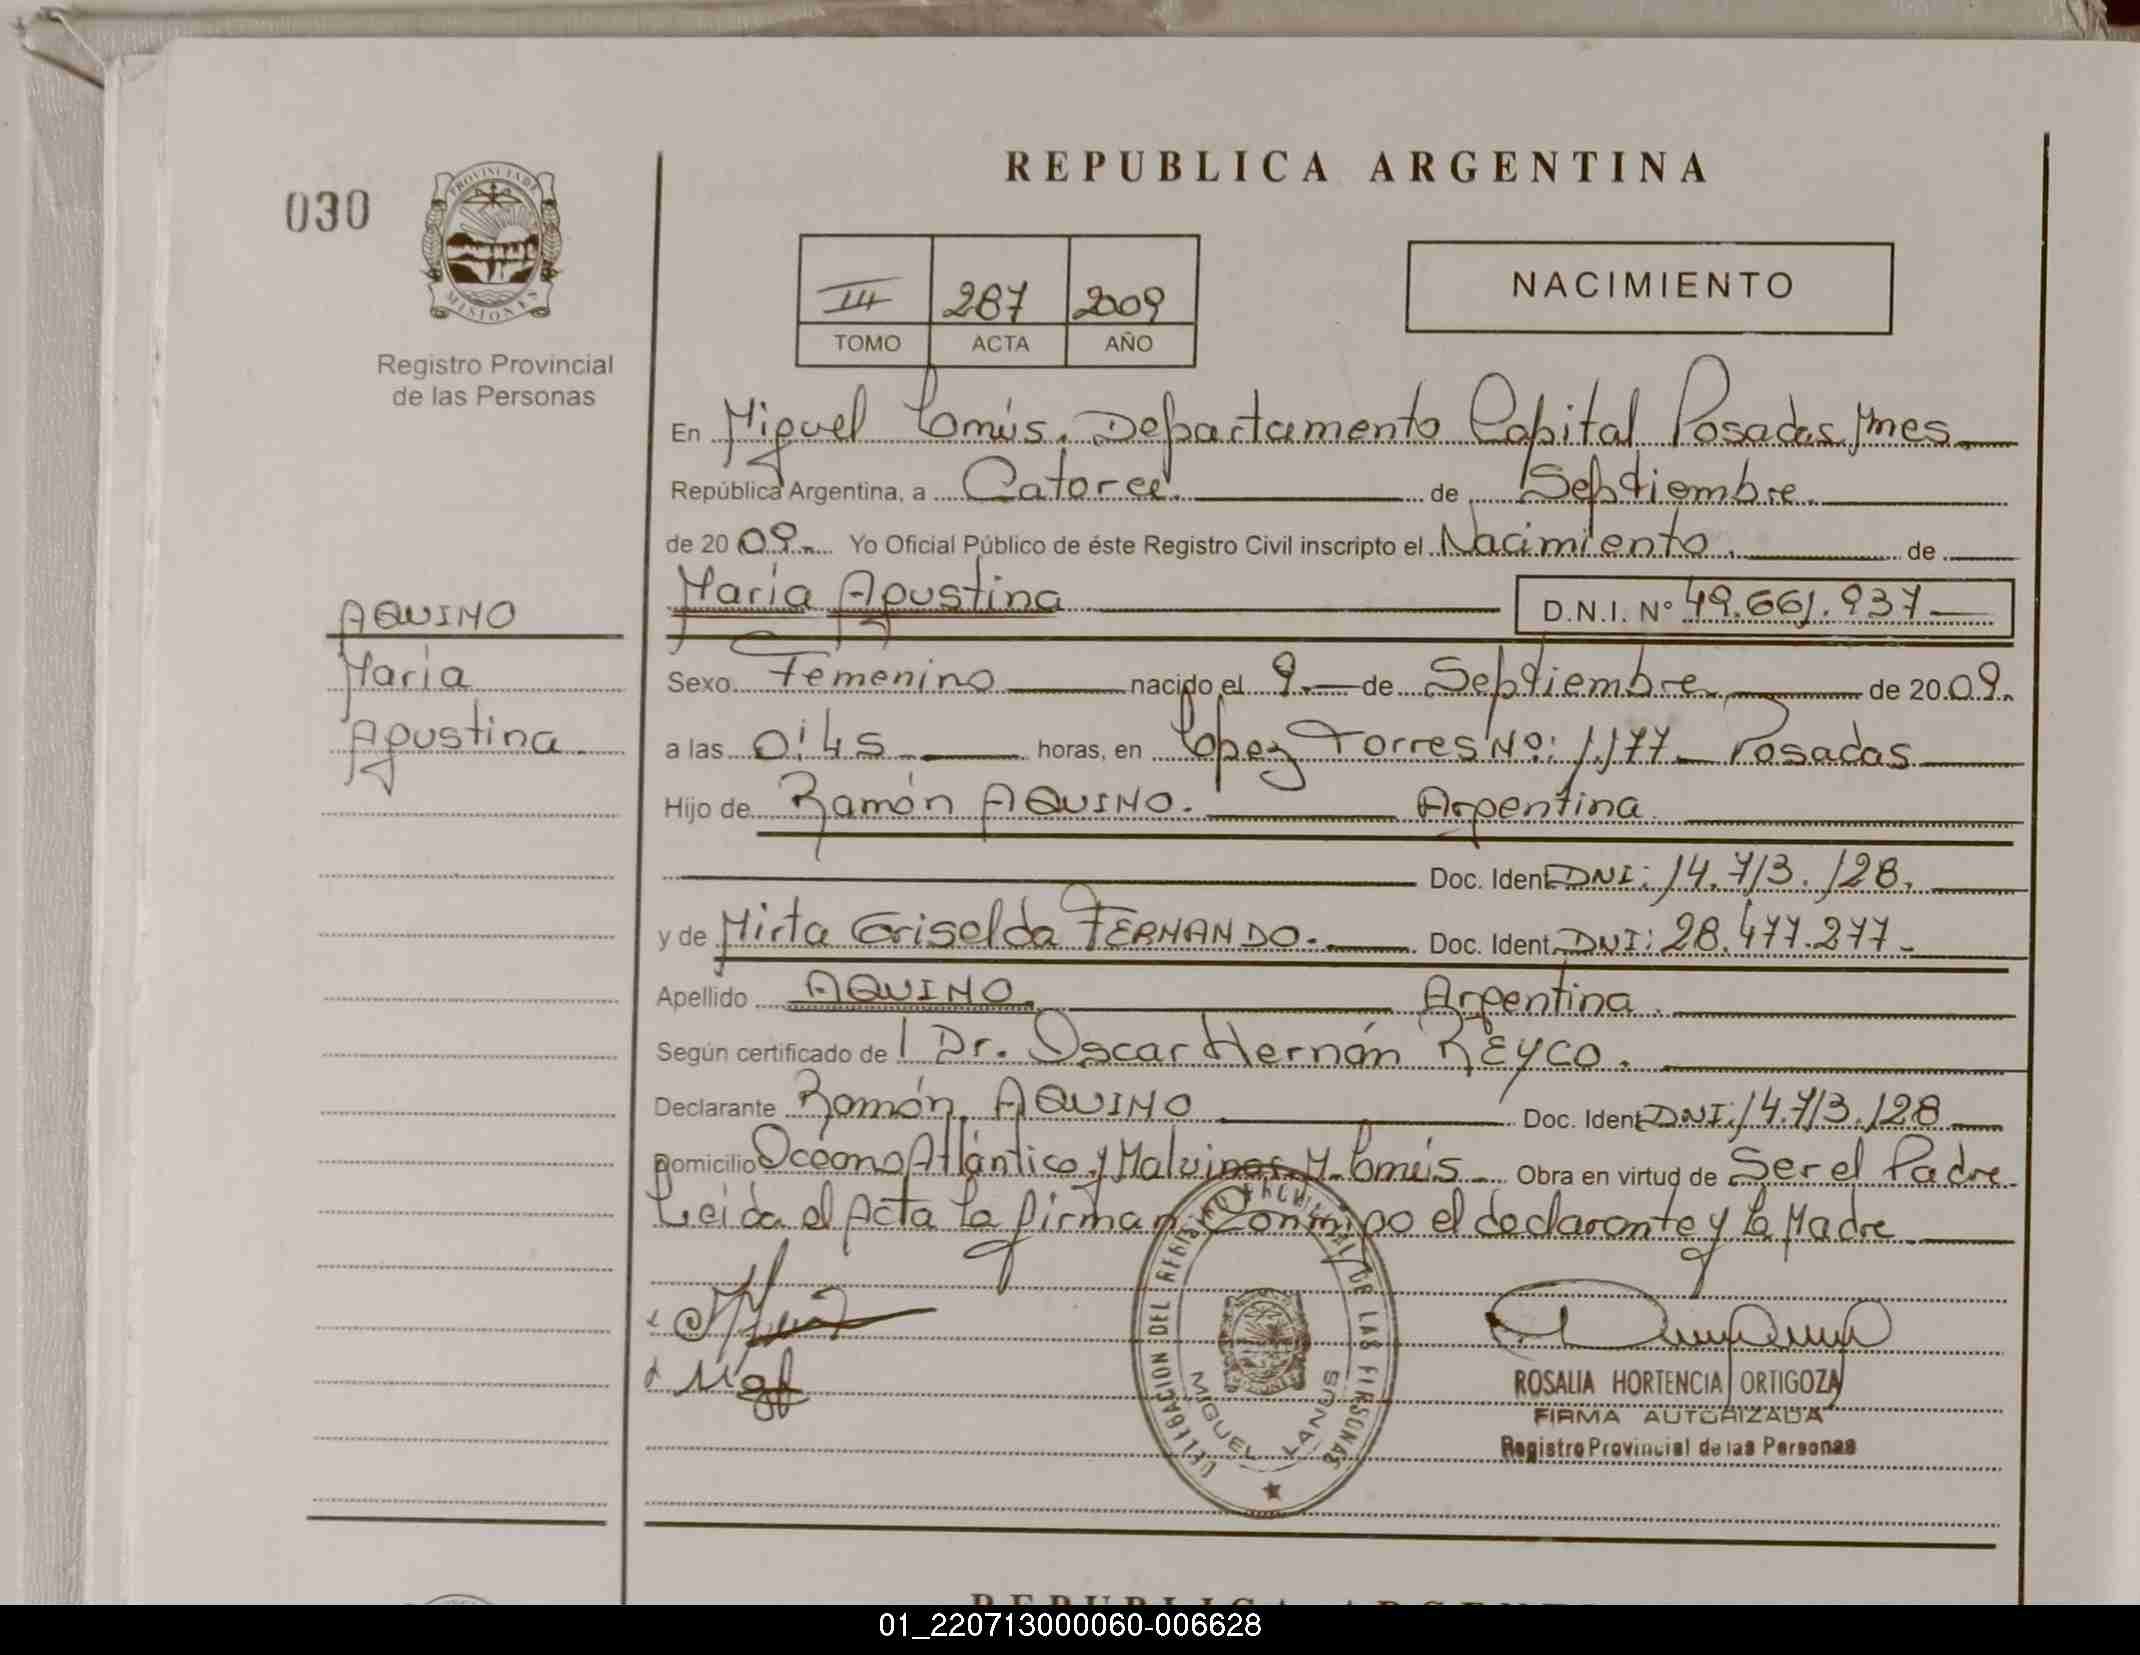 REPUBLICA ARGENTINA
030
PROVINCIA DE
MISIONES
Registro Provincial
de las Personas
III 287 2009
TOMO ACTA AÑO
NACIMIENTO
En Miguel Lanús. Departamento Capital Posadas Mnes.
República Argentina, a Catorce. de Septiembre.
de 20 09.- Yo Oficial Público de éste Registro Civil inscripto el Nacimiento. de
María Agustina D.N.I. Nº 49.661.937
AQUINO
María
Agustina
Sexo Femenino nacido el 9. de Septiembre de 20 09.
a las 0:45 horas, en López Torres Nº: 1177 Posadas
Hijo de Ramón AQUINO. Argentina
Doc. Ident. DNI: 14.713.128.
y de Mirta Griselda FERNANDO.- Doc. Ident. DNI: 28.477.277-
Apellido AQUINO. Argentina.
Según certificado de l Dr. Oscar Hernán REYCO.
Declarante Ramón AQUINO Doc. Ident. DNI: 14.713.128
Domicilio Océano Atlántico y Malvinas M. Lanús Obra en virtud de Ser el Padre.
Leída el Acta la firman conmigo el declarante y la Madre
DELEGACION DEL REGISTRO PROVINCIAL DE LAS PERSONAS
MIGUEL LANUS
ROSALIA HORTENCIA ORTIGOZA
FIRMA AUTORIZADA
Registro Provincial de las Personas
REPUBLICA ARGENTINA
01_220713000060-006628